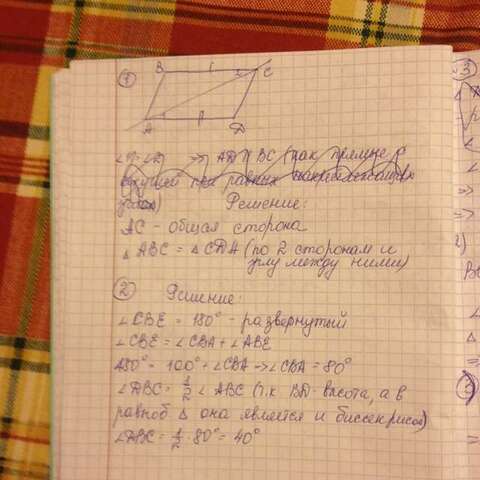 ①
B C
A D
∠1=∠2 => AD ∥ BC (как прямые с
секущей при равных накрестлежащих
углах) Решение:
AC - общая сторона
△ ABC = △ CDA (по 2 сторонам и
углу между ними)
② Решение:
∠CBE = 180° - развернутый
∠CBE = ∠CBA + ∠ABE
180° = 100° + ∠CBA => ∠CBA = 80°
∠DBC = ½ ∠ ABC (т.к BD- высота, а в
равноб △ она является и биссектрисой)
∠DBC = ½ · 80° = 40°